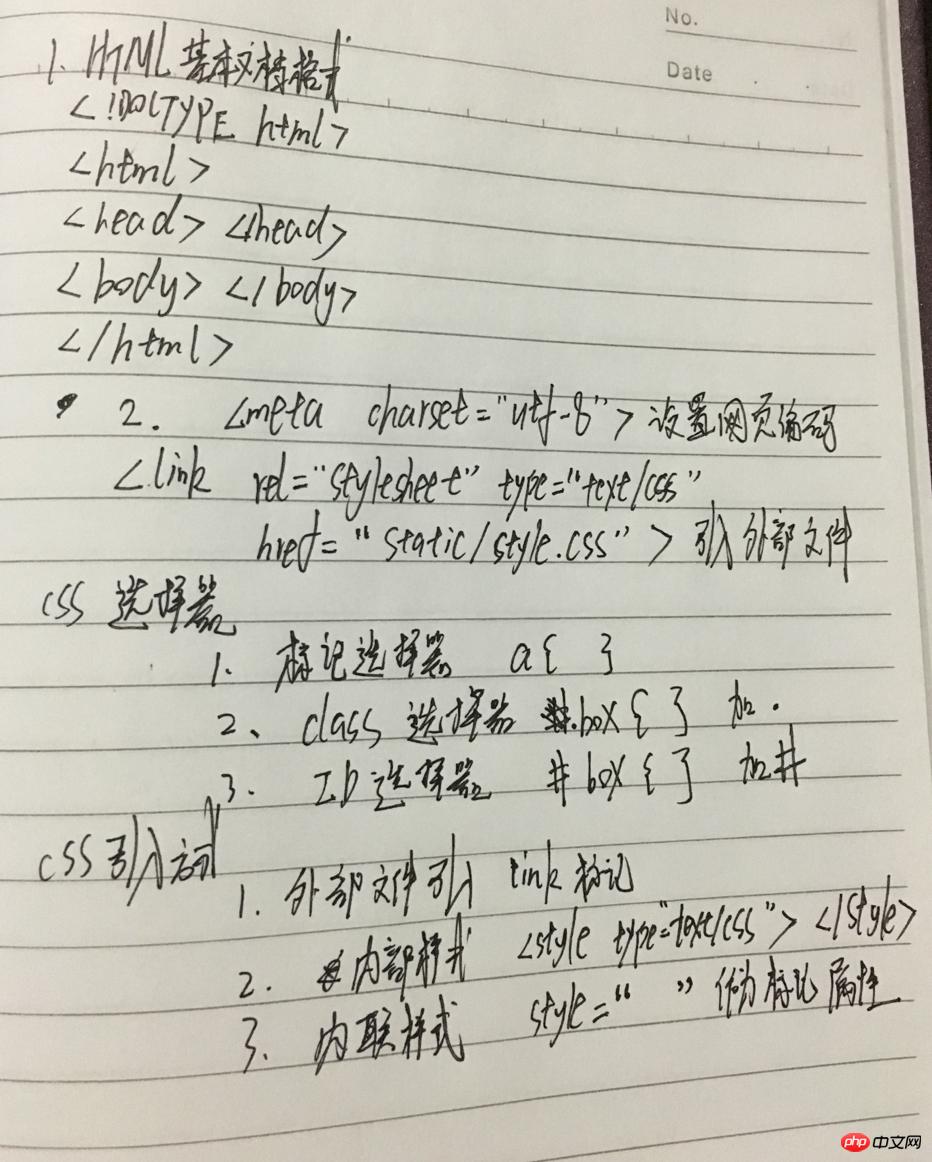 No.
Date
1. HTML 基本文档格式
<!DOCTYPE html>
<html>
<head> </head>
<body> </body>
</html>
2. <meta charset="utf-8"> 设置网页编码
<link rel="stylesheet" type="text/css"
href="static/style.css"> 引入外部文件
css 选择器
1. 标记选择器 a{ }
2、 class 选择器 .box{ } 加 .
3. ID选择器 #box{ } 加#
css 引入方式
1. 外部文件引入 link 标记
2. 内部样式 <style type="text/css"> </style>
3. 内联样式 style=" " 作为标记属性
php 中文网